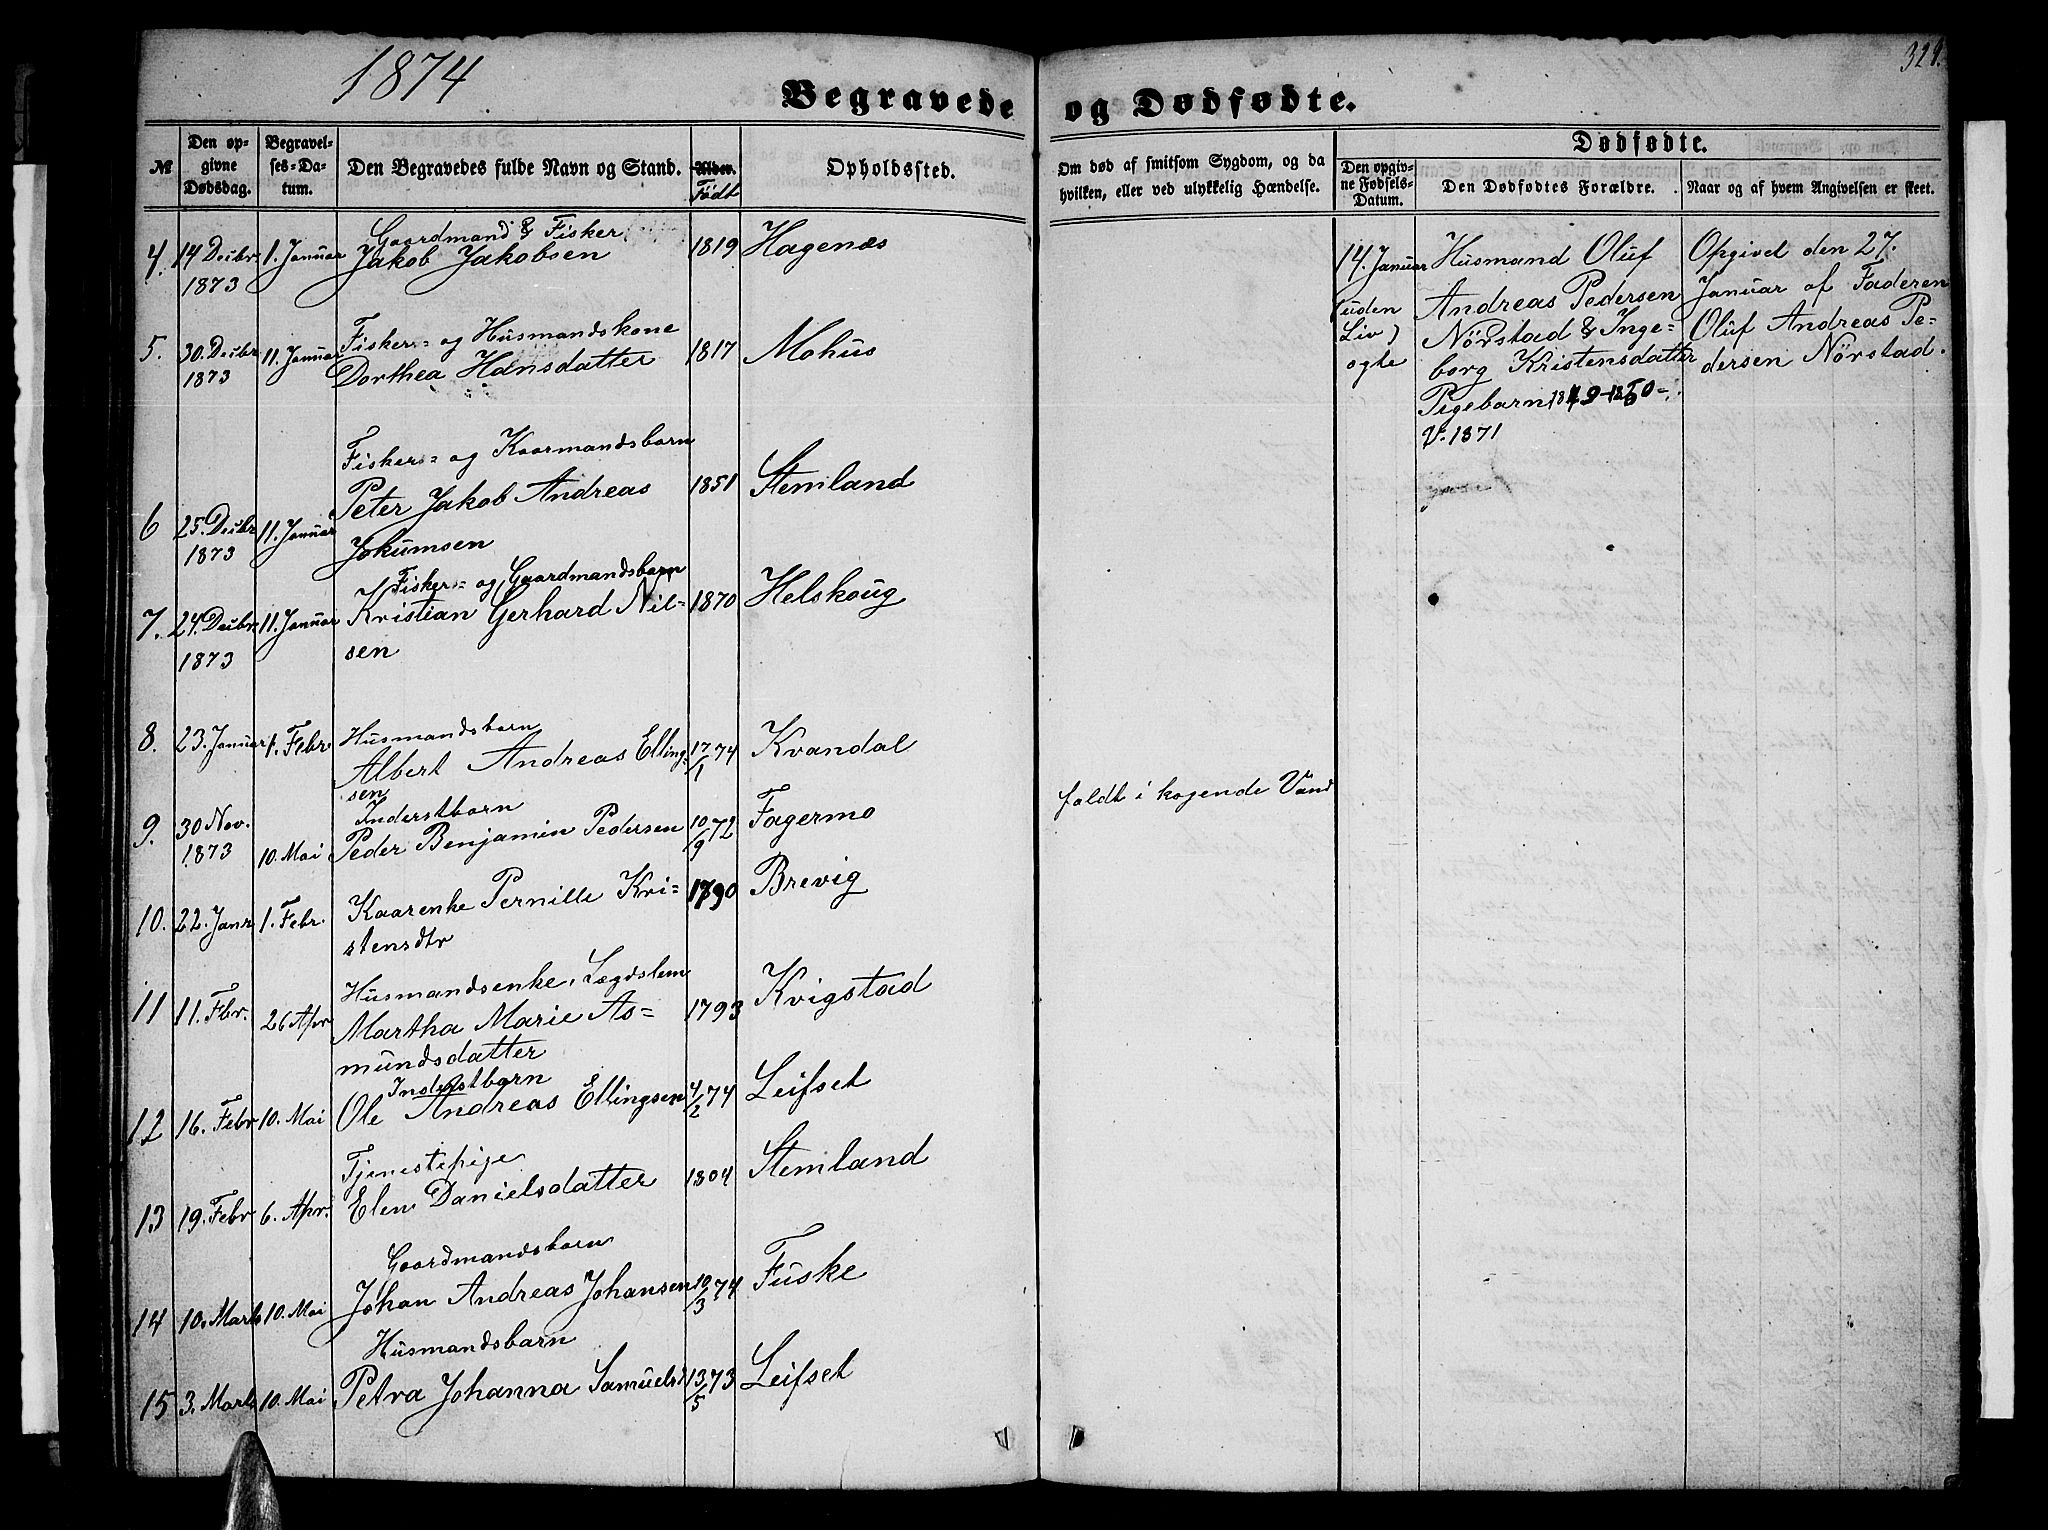 1874
324.
Begravede og Dødfødte.
№
Den op-
givne
Dødsdag.
Begravel-
ses-Da-
tum.
Den Begravedes fulde Navn og Stand.
Alder.
Født
Opholdssted.
Om død af smitsom Sygdom, og da
hvilken, eller ved ulykkelig Hændelse.
Dødfødte.
Den opgiv-
ne Fødsels-
Datum.
Den Dødfødtes Forældre.
Naar og af hvem Angivelsen er skeet.
Gaardmand & Fisker
4. 14 Decbr. 1. Januar Jakob Jakobsen 1819 Hagenæs
1873
Fisker= og Husmandskone
5. 30. Decbr 11. Januar Dorthea Hansdatter 1817 Mohus
1873
Fisker= og Kaarmandsbarn
Peter Jakob Andreas 1851 Stemland
6 25. Decbr 11. Januar Jokumsen
1873
Fisker= og Gaardmandsbarn
7. 24. Decbr. 11. Januar Kristian Gerhard Nil= 1870 Helskoug
1873 sen
8. 23. Januar 1. Febr. Husmandsbarn
Albert Andreas Elling= 17/1 74 Kvandal
sen
Inderstbarn
9. 30 Nov. Peder Benjamin Pedersen 10/9 72 Fagermo
1873 10. Mai
faldt i kogende Vand
10. 22. Janr 1. Febr. Kaarenke Pernille Kri= 1790 Brevig
stensdtr
Husmandsenke, Lægdslem
11 11. Fbr. 26 Apr Martha Marie As= 1793 Kvigstad
mundsdatter
Inderstbarn
12 16. Febr 10. Mai Ole Andreas Ellingsen 4/2 74 Leifset
Tjenestepige
13 19. Febr 6. Apr. Elen Danielsdatter 1804 Stemland
Gaardmandsbarn
14 10. Marts 10. Mai Johan Andreas Johansen 10/3 74 Fuske
Husmandsbarn
15 3. Marts 10. Mai Petra Johanna Samuelsd 13/5 73 Leifset
14. Januar
(uden
Liv)
ogte
Husmand Oluf
Andreas Pedersen
Nörstad & Inge=
borg Kristensdatter
Pigebarn 1849-1850=
V. 1871
Opgivet den 27.
Januar af Faderen
Oluf Andreas Pe=
dersen Nörstad.